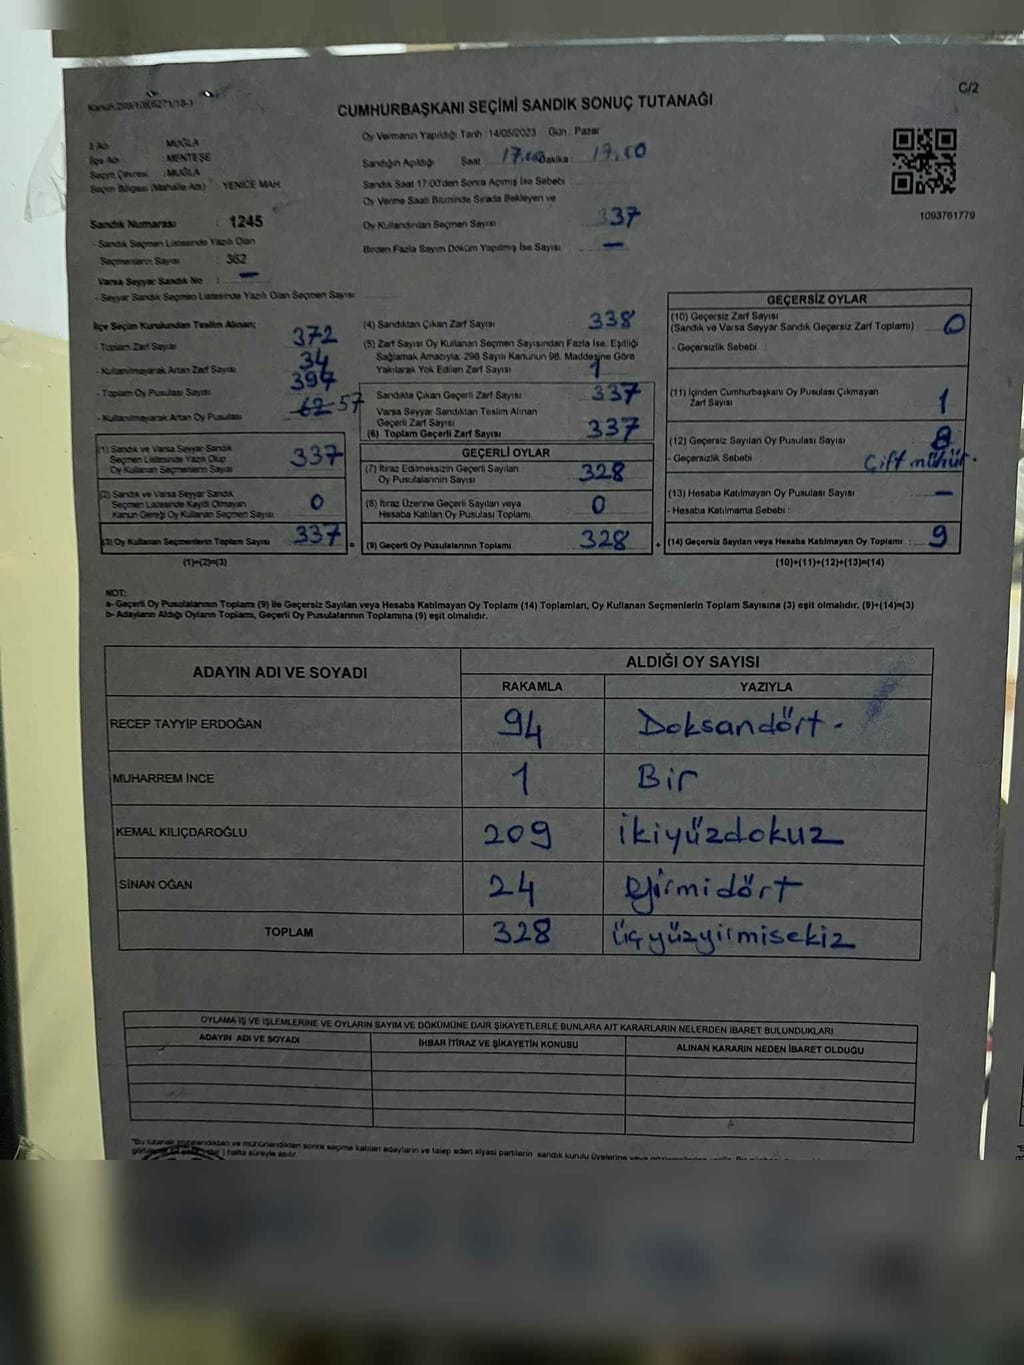 Kanun:298/108,6271/18-1
C/2
CUMHURBAŞKANI SEÇİMİ SANDIK SONUÇ TUTANAĞI
İl Adı : MUĞLA
İlçe Adı : MENTEŞE
Seçim Çevresi : MUĞLA
Seçim Bölgesi (Mahalle Adı) : YENİCE MAH
Sandık Numarası : 1245
- Sandık Seçmen Listesinde Yazılı Olan
Seçmenlerin Sayısı : 362
Varsa Seyyar Sandık No : —
- Seyyar Sandık Seçmen Listesinde Yazılı Olan Seçmen Sayısı
Oy Vermenin Yapıldığı Tarih : 14/05/2023 Gün : Pazar
Sandığın Açıldığı Saat : 17.00 Dakika : 17.00
Sandık Saat 17:00'den Sonra Açılmış İse Sebebi
Oy Verme Saati Bitiminde Sırada Bekleyen ve
Oy Kullandırılan Seçmen Sayısı 337
Birden Fazla Sayım Döküm Yapılmış İse Sayısı —
1093761779
İlçe Seçim Kurulundan Teslim Alınan;
- Toplam Zarf Sayısı 372
- Kullanılmayarak Artan Zarf Sayısı 34
- Toplam Oy Pusulası Sayısı 394
- Kullanılmayarak Artan Oy Pusulası 62 57
(1) Sandık ve Varsa Seyyar Sandık
Seçmen Listesinde Yazılı Olup
Oy Kullanan Seçmenlerin Sayısı 337
(2) Sandık ve Varsa Seyyar Sandık
Seçmen Listesinde Kayıtlı Olmayan
Kanun Gereği Oy Kullanan Seçmen Sayısı 0
(3) Oy Kullanan Seçmenlerin Toplam Sayısı 337 =
(1)+(2)=(3)
(4) Sandıktan Çıkan Zarf Sayısı 338
(5) Zarf Sayısı Oy Kullanan Seçmen Sayısından Fazla İse, Eşitliği
Sağlamak Amacıyla, 298 Sayılı Kanunun 98. Maddesine Göre
Yakılarak Yok Edilen Zarf Sayısı 1
Sandıkta Çıkan Geçerli Zarf Sayısı 337
Varsa Seyyar Sandıktan Teslim Alınan
Geçerli Zarf Sayısı
(6) Toplam Geçerli Zarf Sayısı 337
GEÇERLİ OYLAR
(7) İtiraz Edilmeksizin Geçerli Sayılan
Oy Pusulalarının Sayısı 328
(8) İtiraz Üzerine Geçerli Sayılan veya
Hesaba Katılan Oy Pusulası Toplamı 0
(9) Geçerli Oy Pusulalarının Toplamı 328 +
GEÇERSİZ OYLAR
(10) Geçersiz Zarf Sayısı
(Sandık ve Varsa Seyyar Sandık Geçersiz Zarf Toplamı) : 0
- Geçersizlik Sebebi :
(11) İçinden Cumhurbaşkanı Oy Pusulası Çıkmayan
Zarf Sayısı 1
(12) Geçersiz Sayılan Oy Pusulası Sayısı 8
- Geçersizlik Sebebi Çift mühür.
(13) Hesaba Katılmayan Oy Pusulası Sayısı —
- Hesaba Katılmama Sebebi :
(14) Geçersiz Sayılan veya Hesaba Katılmayan Oy Toplamı : 9
(10)+(11)+(12)+(13)=(14)
NOT:
a- Geçerli Oy Pusulalarının Toplamı (9) ile Geçersiz Sayılan veya Hesaba Katılmayan Oy Toplamı (14) Toplamları, Oy Kullanan Seçmenlerin Toplam Sayısına (3) eşit olmalıdır. (9)+(14)=(3)
b- Adayların Aldığı Oyların Toplamı, Geçerli Oy Pusulalarının Toplamına (9) eşit olmalıdır.
ADAYIN ADI VE SOYADI
ALDIĞI OY SAYISI
RAKAMLA YAZIYLA
RECEP TAYYİP ERDOĞAN 94 Doksandört -
MUHARREM İNCE 1 Bir
KEMAL KILIÇDAROĞLU 209 ikiyüzdokuz
SİNAN OĞAN 24 yirmidört
TOPLAM 328 üçyüzyirmisekiz
OYLAMA İŞ VE İŞLEMLERİNE VE OYLARIN SAYIM VE DÖKÜMÜNE DAİR ŞİKAYETLERLE BUNLARA AİT KARARLARIN NELERDEN İBARET BULUNDUKLARI
ADAYIN ADI VE SOYADI İHBAR İTİRAZ VE ŞİKAYETİN KONUSU ALINAN KARARIN NEDEN İBARET OLDUĞU
"Bu tutanak imzalandıktan ve mühürlendikten sonra seçime katılan adayların ve talep eden siyasi partilerin sandık kurulu üyelerine veya
) hafta süreyle asılır.